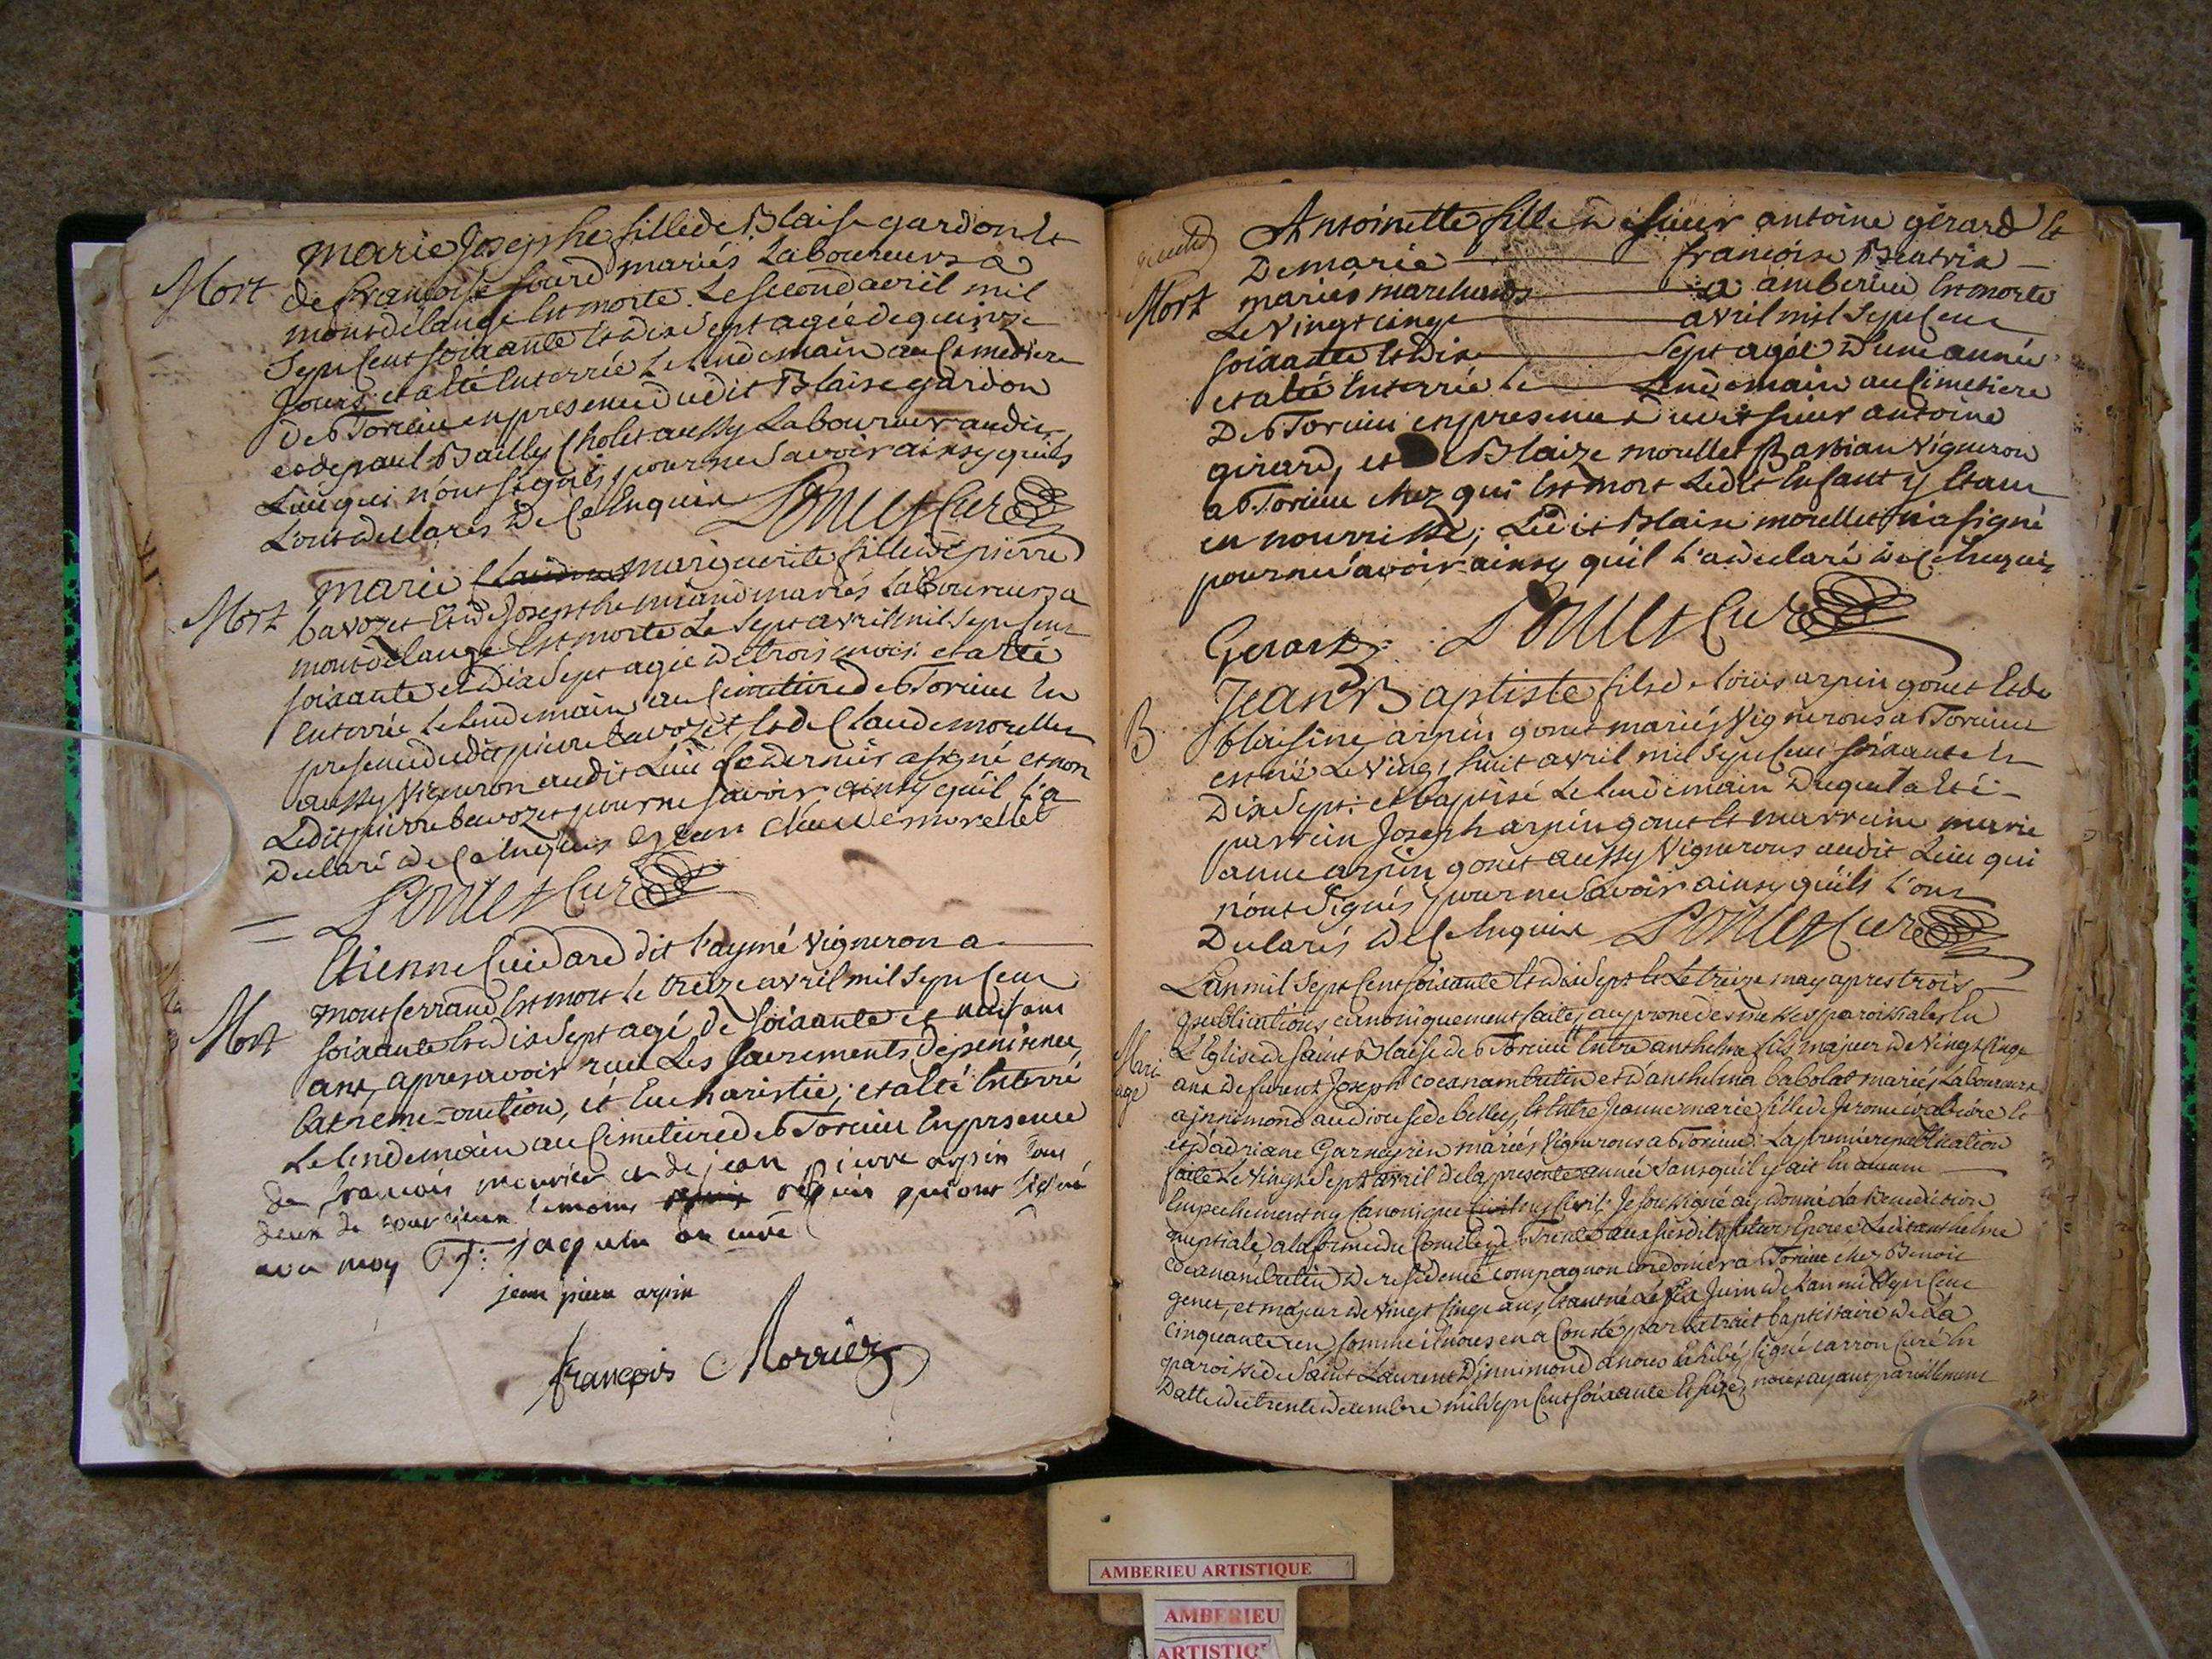 marie Josephe fille de Blaise gardon Et
Mort de françoise sourd mariés Laboureurs a
montdelange Est morte. Le second avril mil
sept Cent soixante Et dix sept agée de quinze
Jours: et a Eté Enterrée Le lendemain au Cimetiere
de Torcieu en presence dudit Blaise gardon
et de paul Bailly Cholet aussy Laboureur audit
Lieu qui n'ont signés pour ne savoir ainsy quils
L'ont déclarés de Ce Enquis Curé
Mort marie Claudine marguerite fille de pierre
bavozet Et de Josephe mariés Laboureurs a
montdelange Est morte Le sept avril mil sept Cent
soixante et dix sept agée de trois mois: et a Eté
Enterrée Le lendemain au Cimetiere de Torcieu En
presence dudit pierre bavozet, Et de Claude morellet
aussy Vigneron audit Lieu Ce dernier a signé et non
Ledit pierre bavozet pour ne savoir ainsy quil l'a
Declaré de Ce Enquis jean claude morellet
Curé
Etienne Cuidard dit l'aymé Vigneron a
Mort montferrand Est mort le treize avril mil sept Cent
soixante Et dix sept agé de soixante et
ans, apres avoir reçu Les sacrements de penitence,
Extreme-onction, et Eucharistie; et a Eté Enterré
Le lendemain au Cimetiere de Torcieu En presence
de francois morrier et de jean pierre arpin tous
deux de temoins requis qui ont signé
avec moy jacquin curé
jean piere arpin
françois Morrier
Antoinette fille à sieur antoine gérard Et
De marie françoise Beatrix
Mort mariés marchands a amberieu Est morte
Le Vingt cinq avril mil sept Cent
soixante Et dix sept agée d'une année
et a Eté Enterrée Le Lendemain au Cimetiere
De Torcieu en presence dudit sieur antoine
gerard, et de Blaize morellet Barbian Vigneron
a Torcieu chez qui Est mort Ledit Enfant y Etant
en nourrisse; Ledit Blaise morellet n'a signé
pour ne savoir ainsy quil l'a declaré de Ce Enquis
Gerard Curé
Jean Baptiste fils de louis arpin gonet Et de
B blaisine arpin gonet mariés Vignerons a Torcieu
est né Le Vingt huit avril mil sept Cent soixante Et
Dix sept: et baptisé Le lendemain Duquel a Eté
parrein Joseph arpin gonet Et marreine marie
anne arpin gonet aussy Vignerons audit Lieu qui
n'ont signés pour ne savoir ainsy quils l'ont
Declarés de Ce Enquis Curé
L'an mil sept Cent soixante Et dix sept Et Le treize may apres trois
publications canoniquement faites au prone des messes paroissiales En
Mari L'Eglise de saint Blaise de Torcieu Entre anthelme fils majeur de Vingt Cinq
age ans de furent Joseph cocanambutin et d'anthelma babolat mariés Laboureurs
a jnnimond audiocese de belley, Et Entre Jeanne marie fille de Jerome Et
et d'adriane Garneyrin mariés Vignerons a Torcieu: La premiere publication
faite Le Vingt sept avril de la presente année sans quil y ait En aucun
Empechement ny Canonique Civil ny Civil: Je soussigné ay donné La benediction
nuptiale a la forme du Concile de Trente aux susdits futurs Epoux Ledit anthelme
cocanambutin de residence compagnon cordonier a Torcieu chez Benoit
genet, et majeur de Vingt Cinq ans, Etant né Le six Juin de L'an mil sept Cent
cinquante un, comme il nous en a Consté par Extrait baptistaire de La
paroisse de saint Laurent D'jnnimond a nous Exhibé, signé carron Curé En
Datte du trente decembre mil sept Cent soixante Et seize, nous ayant pareillement
AMBERIEU ARTISTIQUE
AMBERIEU
ARTISTIQ